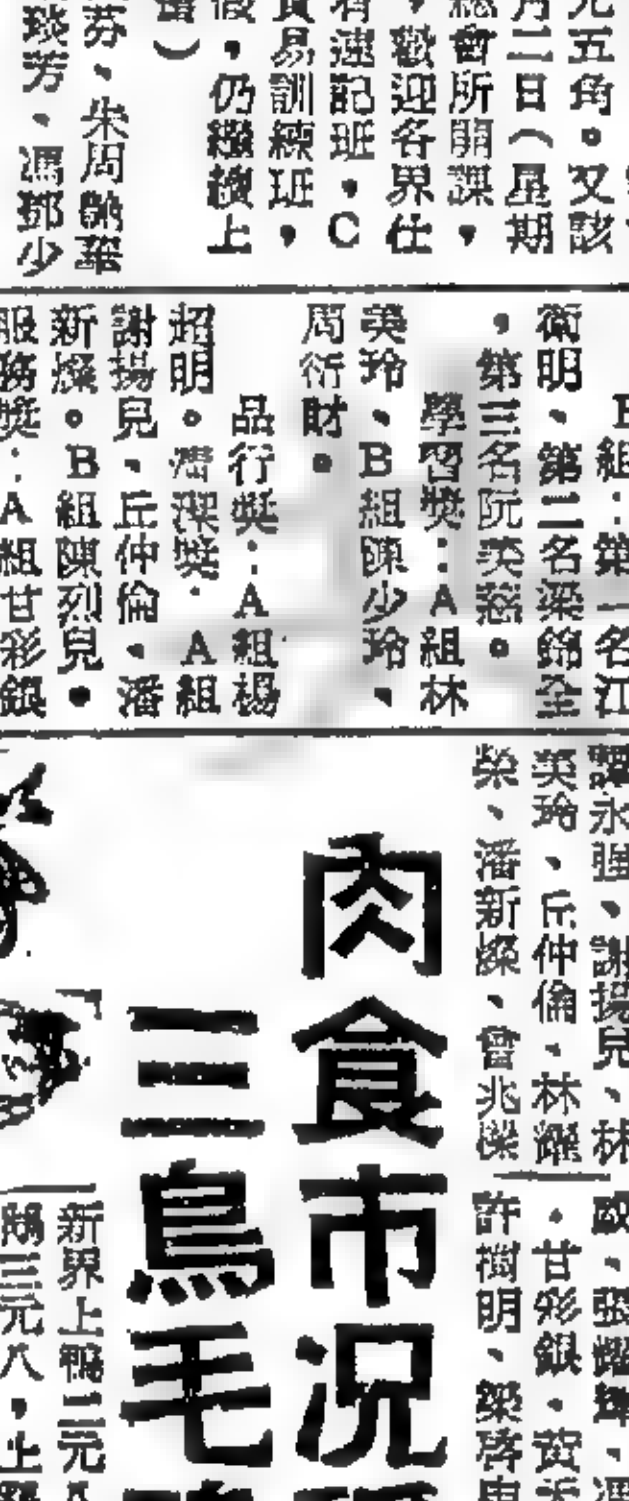 元五角。又該
月二日(星期
總會所開課,
,歡迎各界仕
有速記班,C
貿易訓練班,
假,仍繼續上
芬、朱周
琰芳、馮鄧少
組:第一名江
衛明、第二名梁錦全
,第三名阮美慈。
學習獎:A組林
美玲、B組陳少玲、
周衍財。
品行獎:A組楊
超明。清潔獎:A組
謝揚兒、丘仲倫、潘
新燦。B組陳烈兒。
服務獎:A組甘彩銀
譚永強、謝揚兒、林
英玲、丘仲倫、林耀
榮、潘新燦、曾兆樑
歐、張耀輝、馮
、甘彩銀、黃
許樹明、梁啓
肉食市況
三鳥毛
新界上鴨二元八
鵝三元八,上